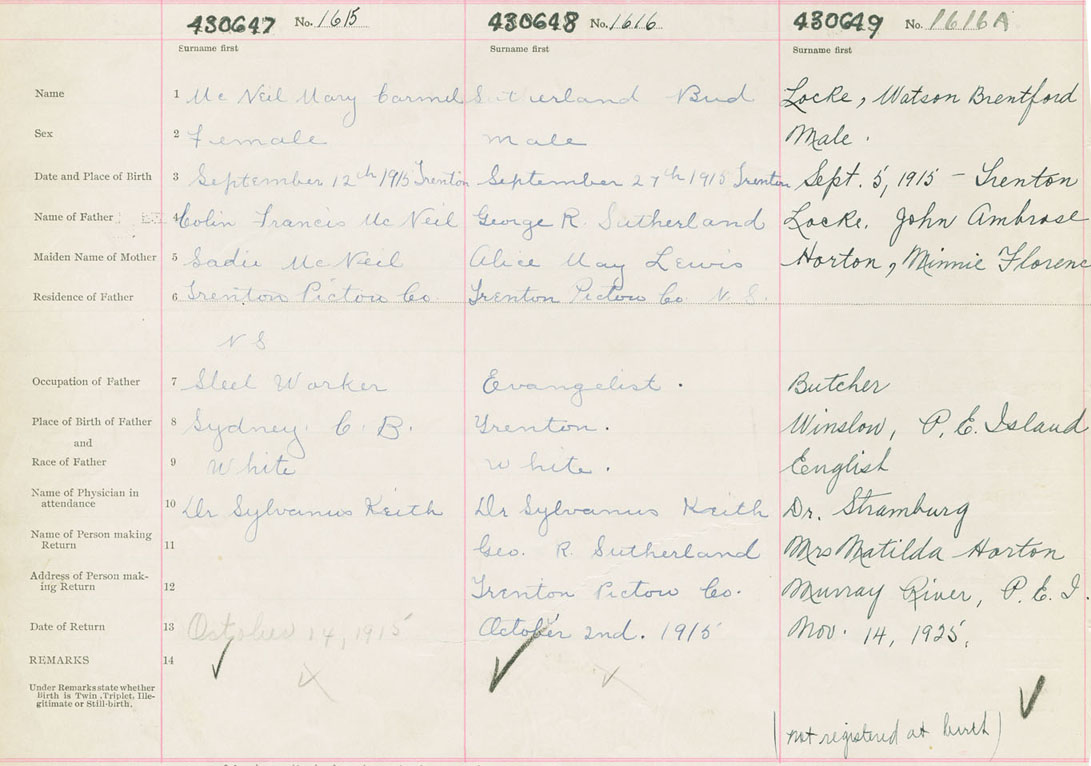 430647 No. 1615 430648 No. 1616 430649 No. 1616A
Surname first Surname first Surname first
Name 1 Mc Neil Mary Carmel Sutherland Bud Locke, Watson Brentford
Sex 2 Female Male Male.
Date and Place of Birth 3 September 12th 1915 Trenton September 27th 1915 Trenton Sept. 5, 1915 - Trenton
Name of Father 4 Colin Francis Mc Neil George R. Sutherland Locke, John Ambrose
Maiden Name of Mother 5 Sadie McNeil Alice May Lewis Horton, Minnie Florenc
Residence of Father 6 Trenton Pictou Co. Trenton Pictou Co. N. S.
N S
Occupation of Father 7 Steel Worker Evangelist. Butcher
Place of Birth of Father 8 Sydney. C. B. Trenton. Winslow, P. E. Island
and
Race of Father 9 White White. English
Name of Physician in
attendance 10 Dr Sylvanus Keith Dr Sylvanus Keith Dr. Stramburg
Name of Person making
Return 11 Geo. R. Sutherland Mrs Matilda Horton
Address of Person mak-
ing Return 12 Trenton Pictou Co. Murray River, P. E. I.
Date of Return 13 October 14, 1915 October 2nd. 1915 Nov. 14, 1925.
REMARKS 14
Under Remarks state whether
Birth is Twin, Triplet, Ille-
gitimate or Still-birth.
(not registered at birth)